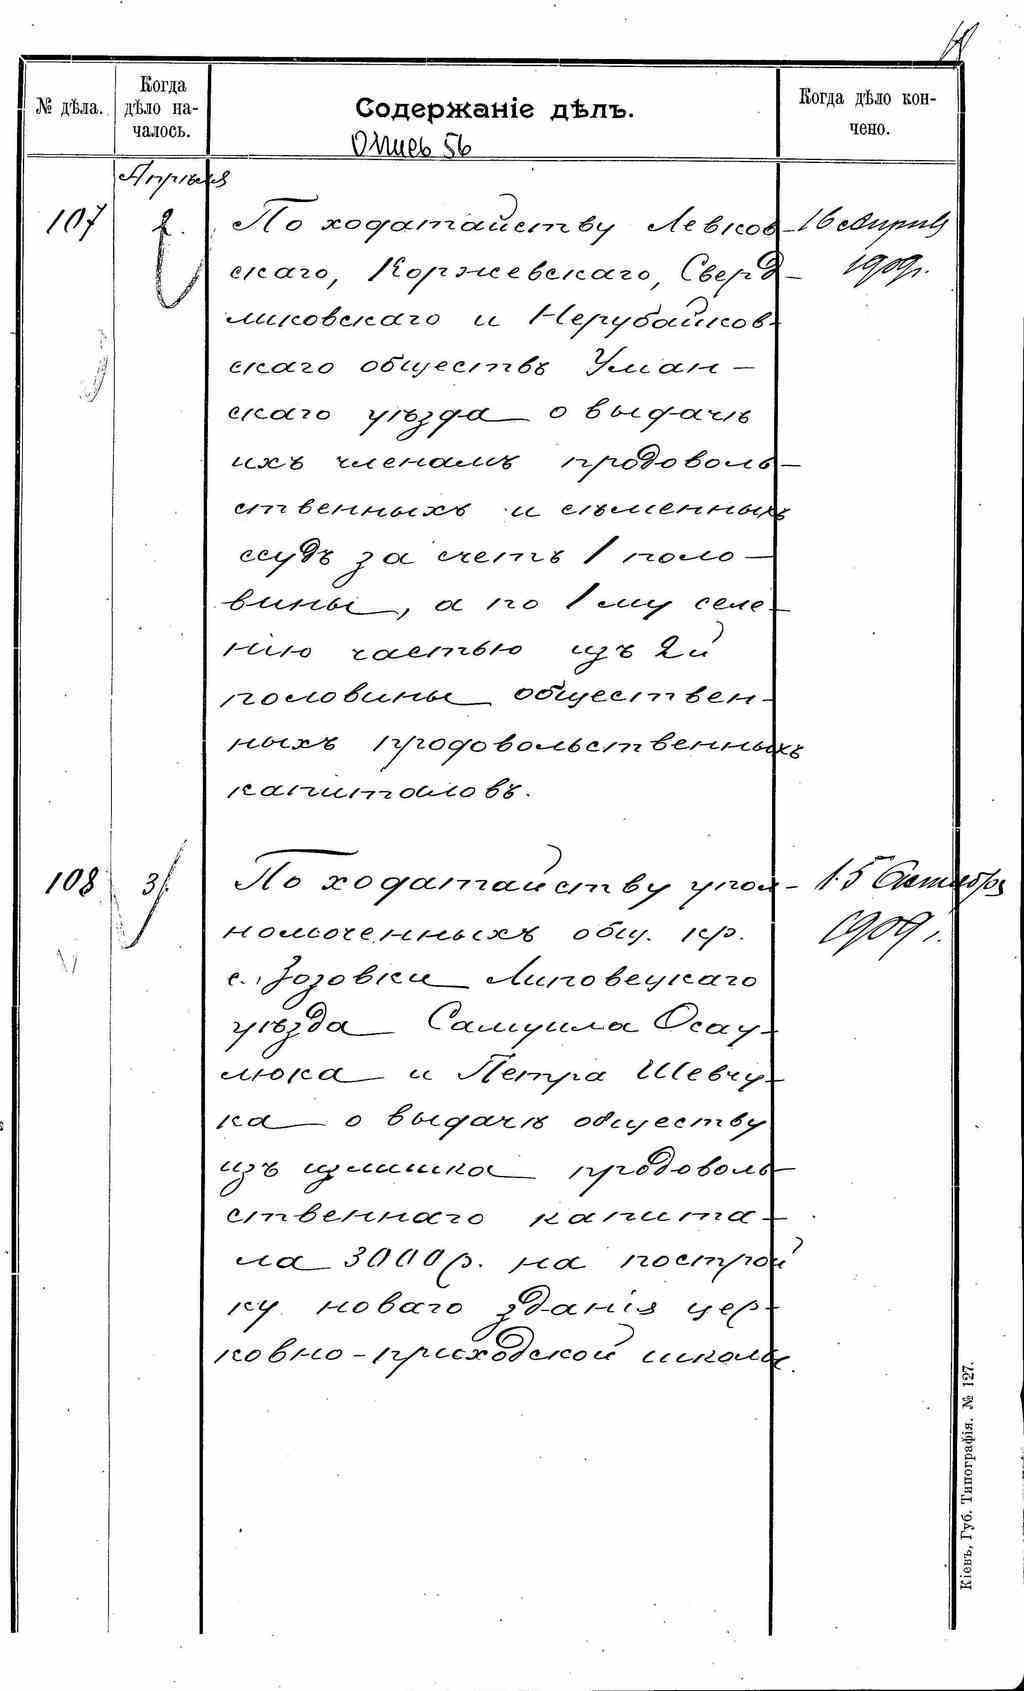 № дѣла. Когда дѣло на-чалось. Содержаніе дѣлъ. Когда дѣло кон-чено.
Опись 56
Апрѣля
107 2. По ходатайству Левков- 16 Априля
скаго, Коржевскаго, Сверд- 1909г.
ликовскаго и Нерубайков-
скаго обществъ Уман-
скаго уѣзда о выдачѣ
ихъ членамъ продоволь-
ственныхъ и сѣменныхъ
ссудъ за счетъ 1 поло-
вины, а по 1му селе-
нію частью изъ 2й
половины обществен-
ныхъ продовольственныхъ
капиталовъ.
108 3. По ходатайству упол- 15 Октября
номоченныхъ общ. кр. 1909 г.
с. Зозовки Липовецкаго
уѣзда Самуила Осау-
люка и Петра Шевчу-
ка о выдачѣ обществу
изъ излишка продоволь-
ственнаго капита-
ла 3000 р. на построй
ку новаго зданія цер-
ковно-приходской школы.
Кіевъ, Губ. Типографія. № 127.